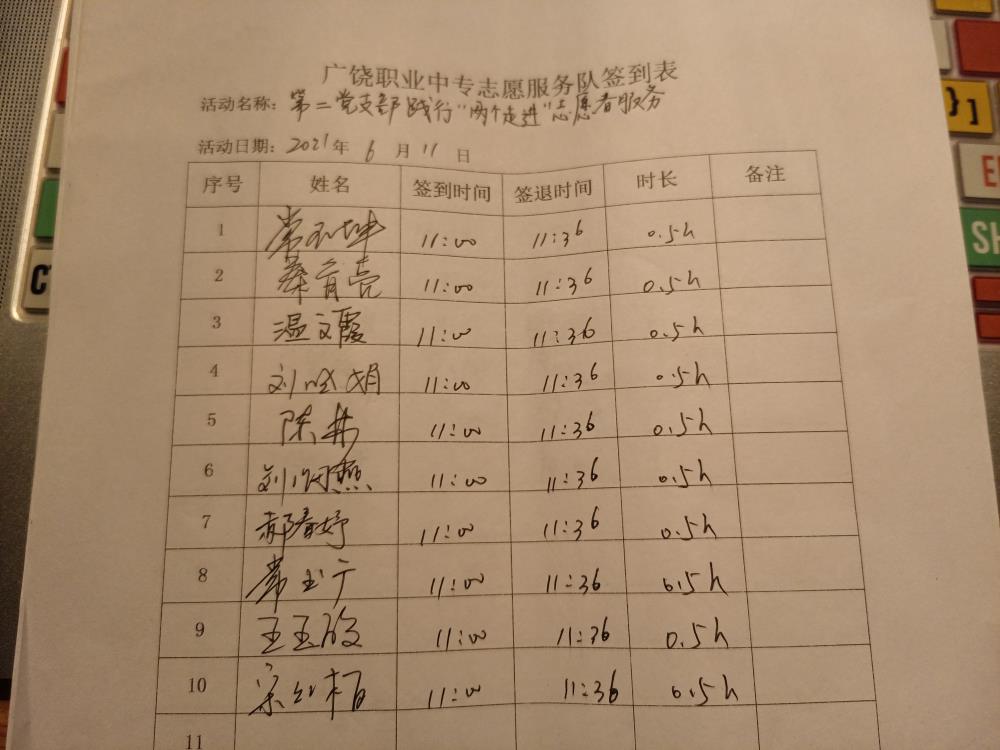 广饶职业中专志愿服务队签到表
活动名称：第二党支部践行"两个走进"志愿者服务
活动日期：2021年 6 月 11 日
序号 姓名 签到时间 签退时间 时长 备注
1 11:00 11:36 0.5h
2 11:00 11:36 0.5h
3 温文霞 11:00 11:36 0.5h
4 刘晓娟 11:00 11:36 0.5h
5 11:00 11:36 0.5h
6 11:00 11:36 0.5h
7 郝春妤 11:00 11:36 0.5h
8 常玉广 11:00 11:36 0.5h
9 11:00 11:36 0.5h
10 11:00 11:36 0.5h
11
}]
SH